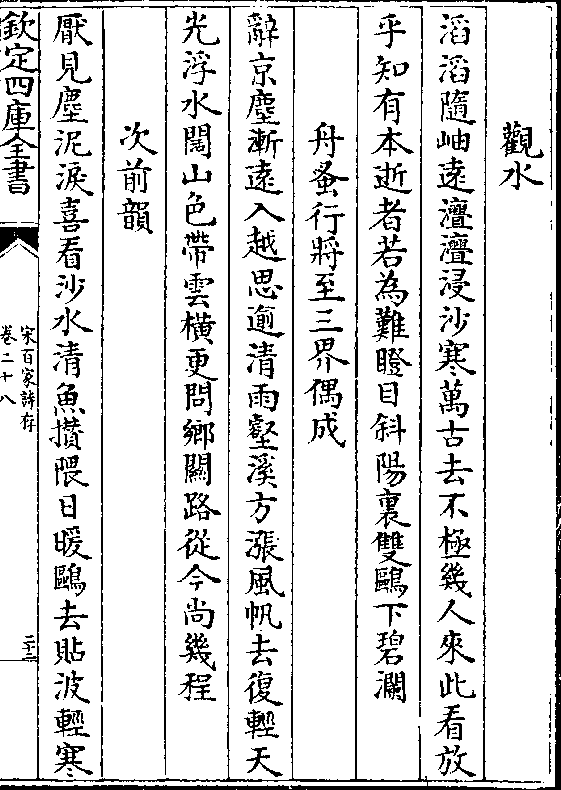 觀水
滔滔隨岫遠澶澶浸沙寒萬古去不極幾人來此看放
乎知有本逝者若為難瞪目斜陽裏雙鷗下碧瀾
舟蚤行將至三界偶成
辭京塵漸遠入越思逾清雨壑溪方漲風帆去復輕天
光浮水闊山色帶雲橫更問鄉關路從今尚幾程
次前韻
厭見塵泥淚喜看沙水清魚攢隈日暖鷗去貼波輕寒
欽定四庫全書
宋百家詩存
卷二十八